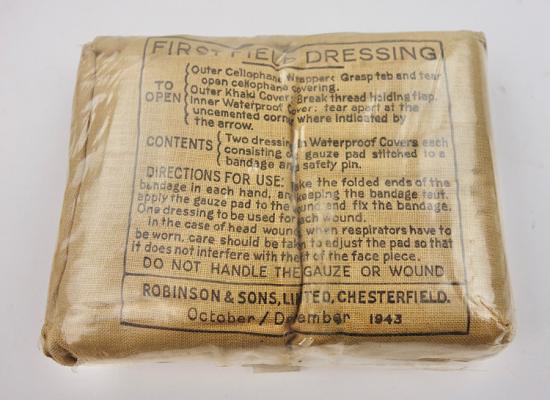 FIRST FIELD DRESSING
Outer Cellophane Wrapper: Grasp tab and tear
open cellophane covering.
TO OPEN
Outer Khaki Cover: Break thread holding flap.
Inner Waterproof Cover: tear apart at the
uncemented corner where indicated by
the arrow.
CONTENTS
Two dressings in Waterproof Covers each
consisting of gauze pad stitched to a
bandage and safety pin.
DIRECTIONS FOR USE: Take the folded ends of the
bandage in each hand, and keeping the bandage taut,
apply the gauze pad to the wound and fix the bandage.
One dressing to be used for each wound.
In the case of head wound when respirators have to
be worn, care should be taken to adjust the pad so that
it does not interfere with the fit of the face piece.
DO NOT HANDLE THE GAUZE OR WOUND
ROBINSON & SONS, LIMITED, CHESTERFIELD.
October/December 1943